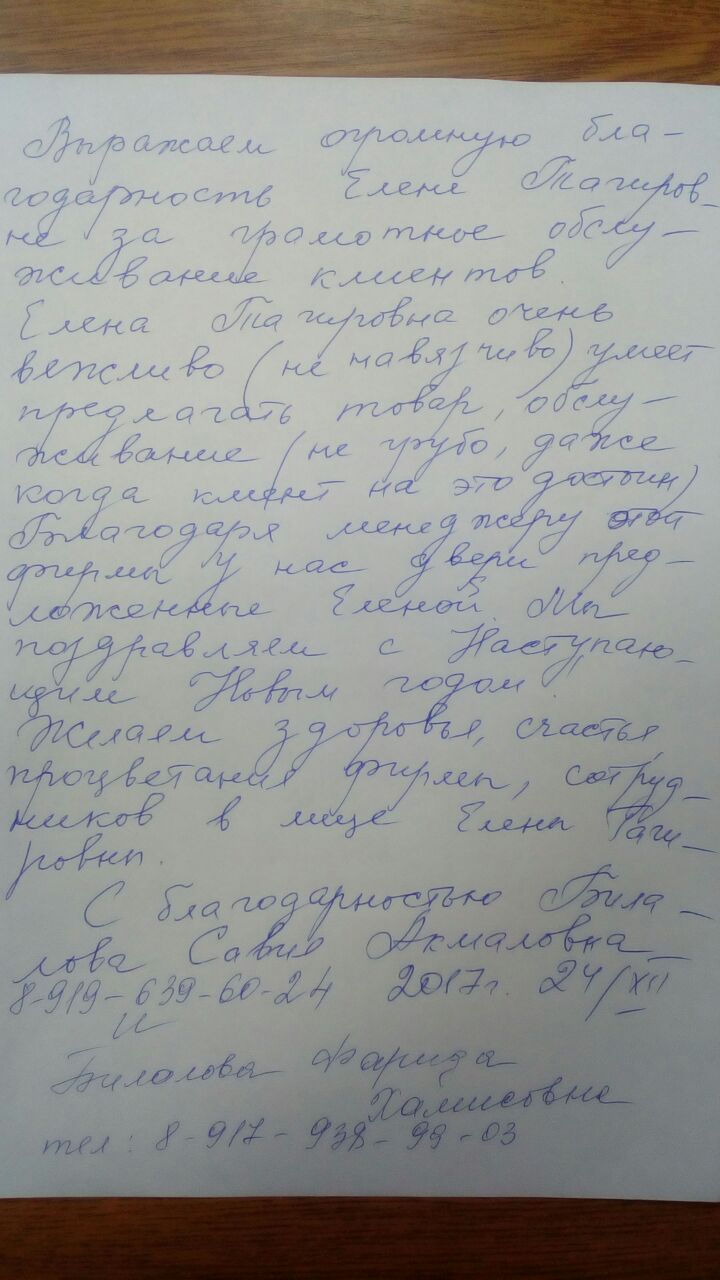 Выражаем огромную бла-
годарность Елене Тагиров-
не за грамотное обслу-
живание клиентов.
Елена Тагировна очень
вежливо (не навязчиво) умеет
предлагать товар, обслу-
живание (не грубо, даже
когда клиент на это достоин)
Благодаря менеджеру этой
фирмы у нас двери пред-
ложенные Еленой. Мы
поздравляем с Наступаю-
щим Новым годом!
Желаем здоровья, счастья,
процветания фирмы, сотруд-
ников в лице Елены Таги-
ровны.
С благодарностью Била-
лова Савие Акмаловна
8-919-639-60-24 2017г. 24/XII
И
Билалова Фарида
Хамисовна
тел: 8-917-938-99-03